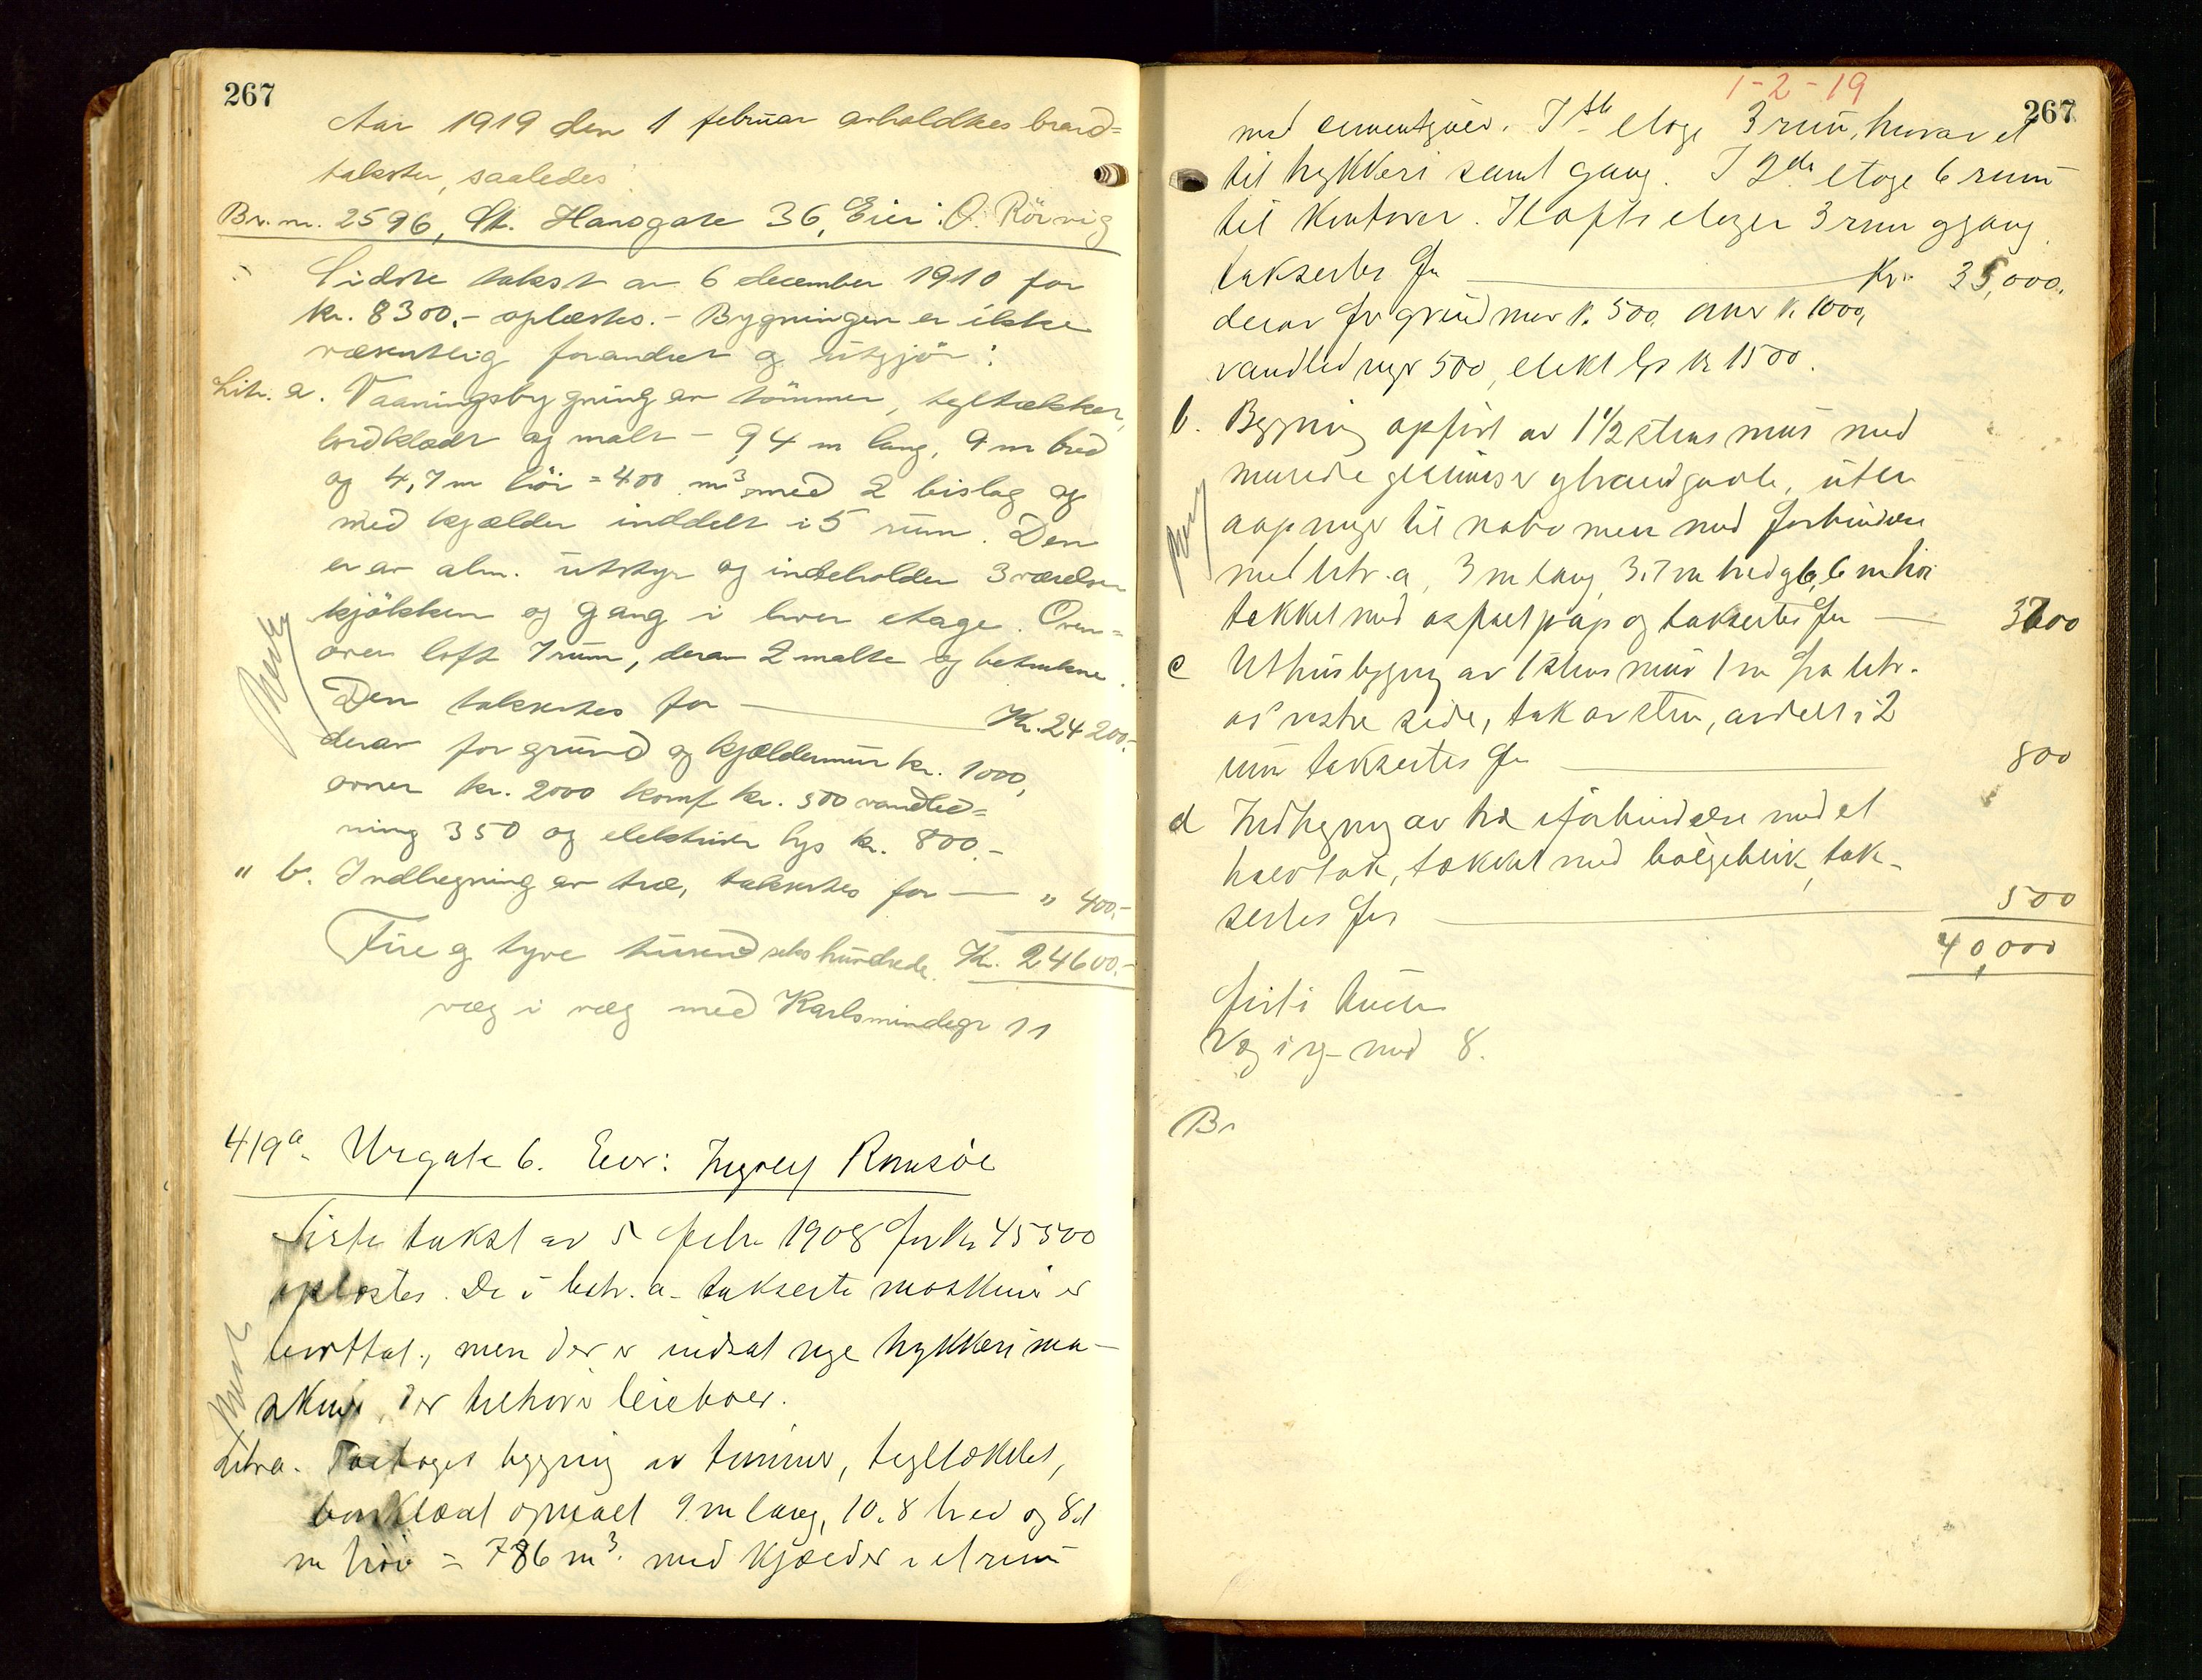 267
Aar 1919 den 1 februar avholdtes brand=
takster, saaledes:
Br. nr. 2596, St. Hansgate 36, Eier: O. Rörvig
Sidste takst av 6 december 1910 for
kr. 8300.- oplæstes. - Bygningen er ikke
væsentlig forandret og utgjör:
Litr. a. Vaaningsbygning av tömmer, tegltækket,
bordklædt og malt - 9,4 m lang, 9 m bred
og 4,7 m höi = 400 m³ med 2 bislag og
med kjælder inddelt i 5 rum. Den
er av alm. utstyr og indeholder 3 værelser
kjökken og gang i hver etage. Oven=
over loft 7 rum, derav 2 malte og betrukne.
Den taksertes for — Kr. 24200.-
derav for grund og kjældermur kr. 1000,
ovner kr. 2000 komf kr. 500 vandled=
ning 350 og elektrisk lys kr. 800.-
" b. Indhegning av træ, taksertes for — " 400.-
Fire og tyve tusend seks hundrede. Kr. 24600.-
væg i væg med Karlsmindegr 11
419a. Urgate 6. Eier: Ingolf Ramsöe
Siste takst av 5 febr 1908 for Kr 45500
oplæstes. De i litr. a. takserte maskiner er
borttat, men der er indsat nye trykkerima-
skiner, der tilhører leieboer.
Litra. Toetages bygning av tømmer, tegltækket,
bordklædt opmalt 9 m lang, 10.8 bred og 8.1
m høi = 786 m³. med kjælder i et rum
1-2-19
267
med cementgulv. I 1ste etage 3 rum, hvorav et
til trykkeri samt gang. I 2den etage 6 rum
til kontorer. I loftsetagen 3 rum og gang.
taksertes for — Kr. 35,000.
derav for grundmur k. 500. ovner k. 1000,
vandledninger 500, elekt lys kr 1500.
b. Bygning opført av 1 1/2 stens mur med
murede gesimser og brandgavle, uten
aapninger til nabo men med forbindelse
med litr. a, 3 m lang, 3.7 m bred og 6,6 m høi
tækket med asfaltpap og taksertes for — 3700
c Uthusbygning av 1 stens mur 1 m fra litr.
as' vestre side, tak av sten, avdelt i 2
rum taksertes for — 800
d Indhegning av træ i forbindelse med et
halvtak, tækket med bølgeblik, tak-
sertes for — 500
40,000
firti tusen
Væg i væg med 8.
Br